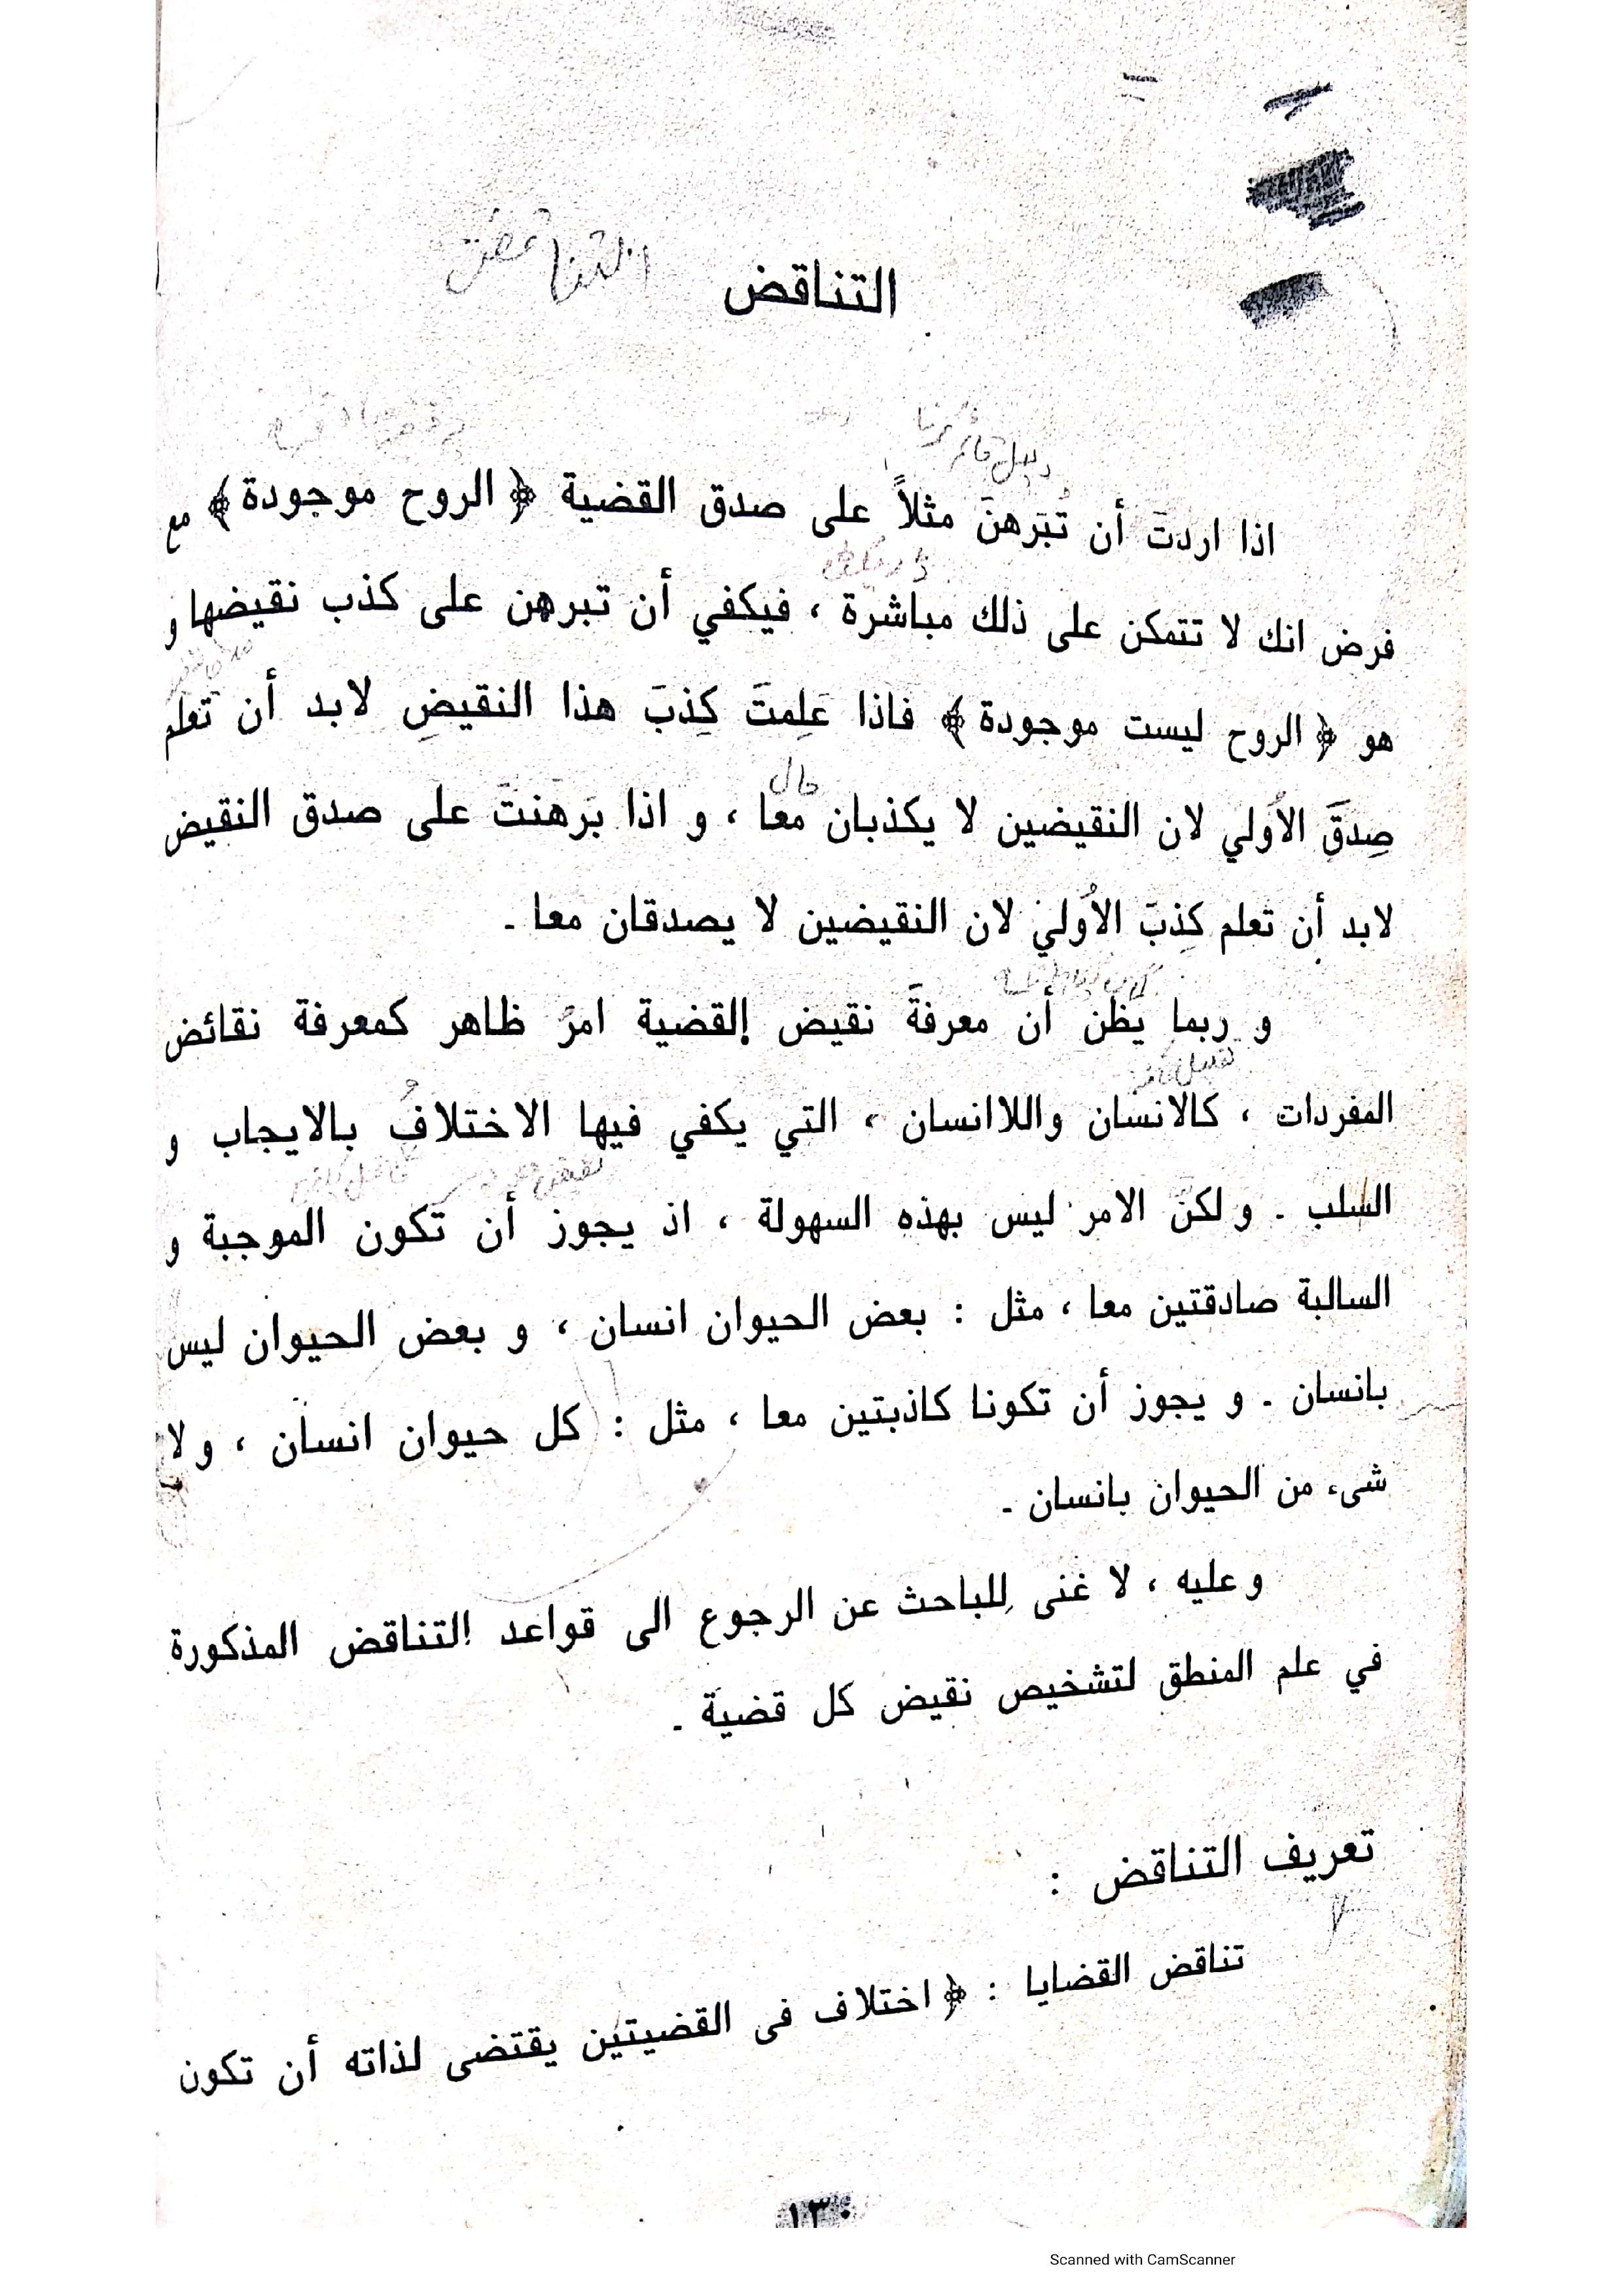 التناقض
التناقض
دليل قائم كرنا
اذا اردتَ أن تُبَرهنَ مثلاً على صدق القضية ﴿ الروح موجودة﴾ مع
فرض انك لا تتمكن على ذلك مباشرة ، فيكفي أن تبرهن على كذب نقيضها و
هو ﴿ الروح ليست موجودة﴾ فاذا عَلِمتَ كِذبَ هذا النقيضِ لابد أن تعلم
حال
صِدقَ الاُولي لان النقيضين لا يكذبان معا ، و اذا بَرَهنتَ على صدق النقيض
لابد أن تعلم كِذبَ الاُولي لان النقيضين لا يصدقان معا ـ
و ربما يظن أن معرفةَ نقيض القضية امرٌ ظاهر كمعرفة نقائض
المفردات ، كالانسان واللاانسان ، التي يكفي فيها الاختلافُ بالايجاب و
السلب ـ و لكنّ الامر ليس بهذه السهولة ، اذ يجوز أن تكون الموجبة و
السالبة صادقتين معا ، مثل : بعض الحيوان انسان ، و بعض الحيوان ليس
بانسان ـ و يجوز أن تكونا كاذبتين معا ، مثل : كل حيوان انسان ، و لا
شىء من الحيوان بانسان ـ
و عليه ، لا غنى لِلباحث عن الرجوع الى قواعد التناقض المذكورة
في علم المنطق لتشخيص نقيض كل قضية ـ
تعريف التناقض :
تناقض القضايا : ﴿ اختلاف فى القضيتين يقتضى لذاته أن تكون
١٣٠
Scanned with CamScanner